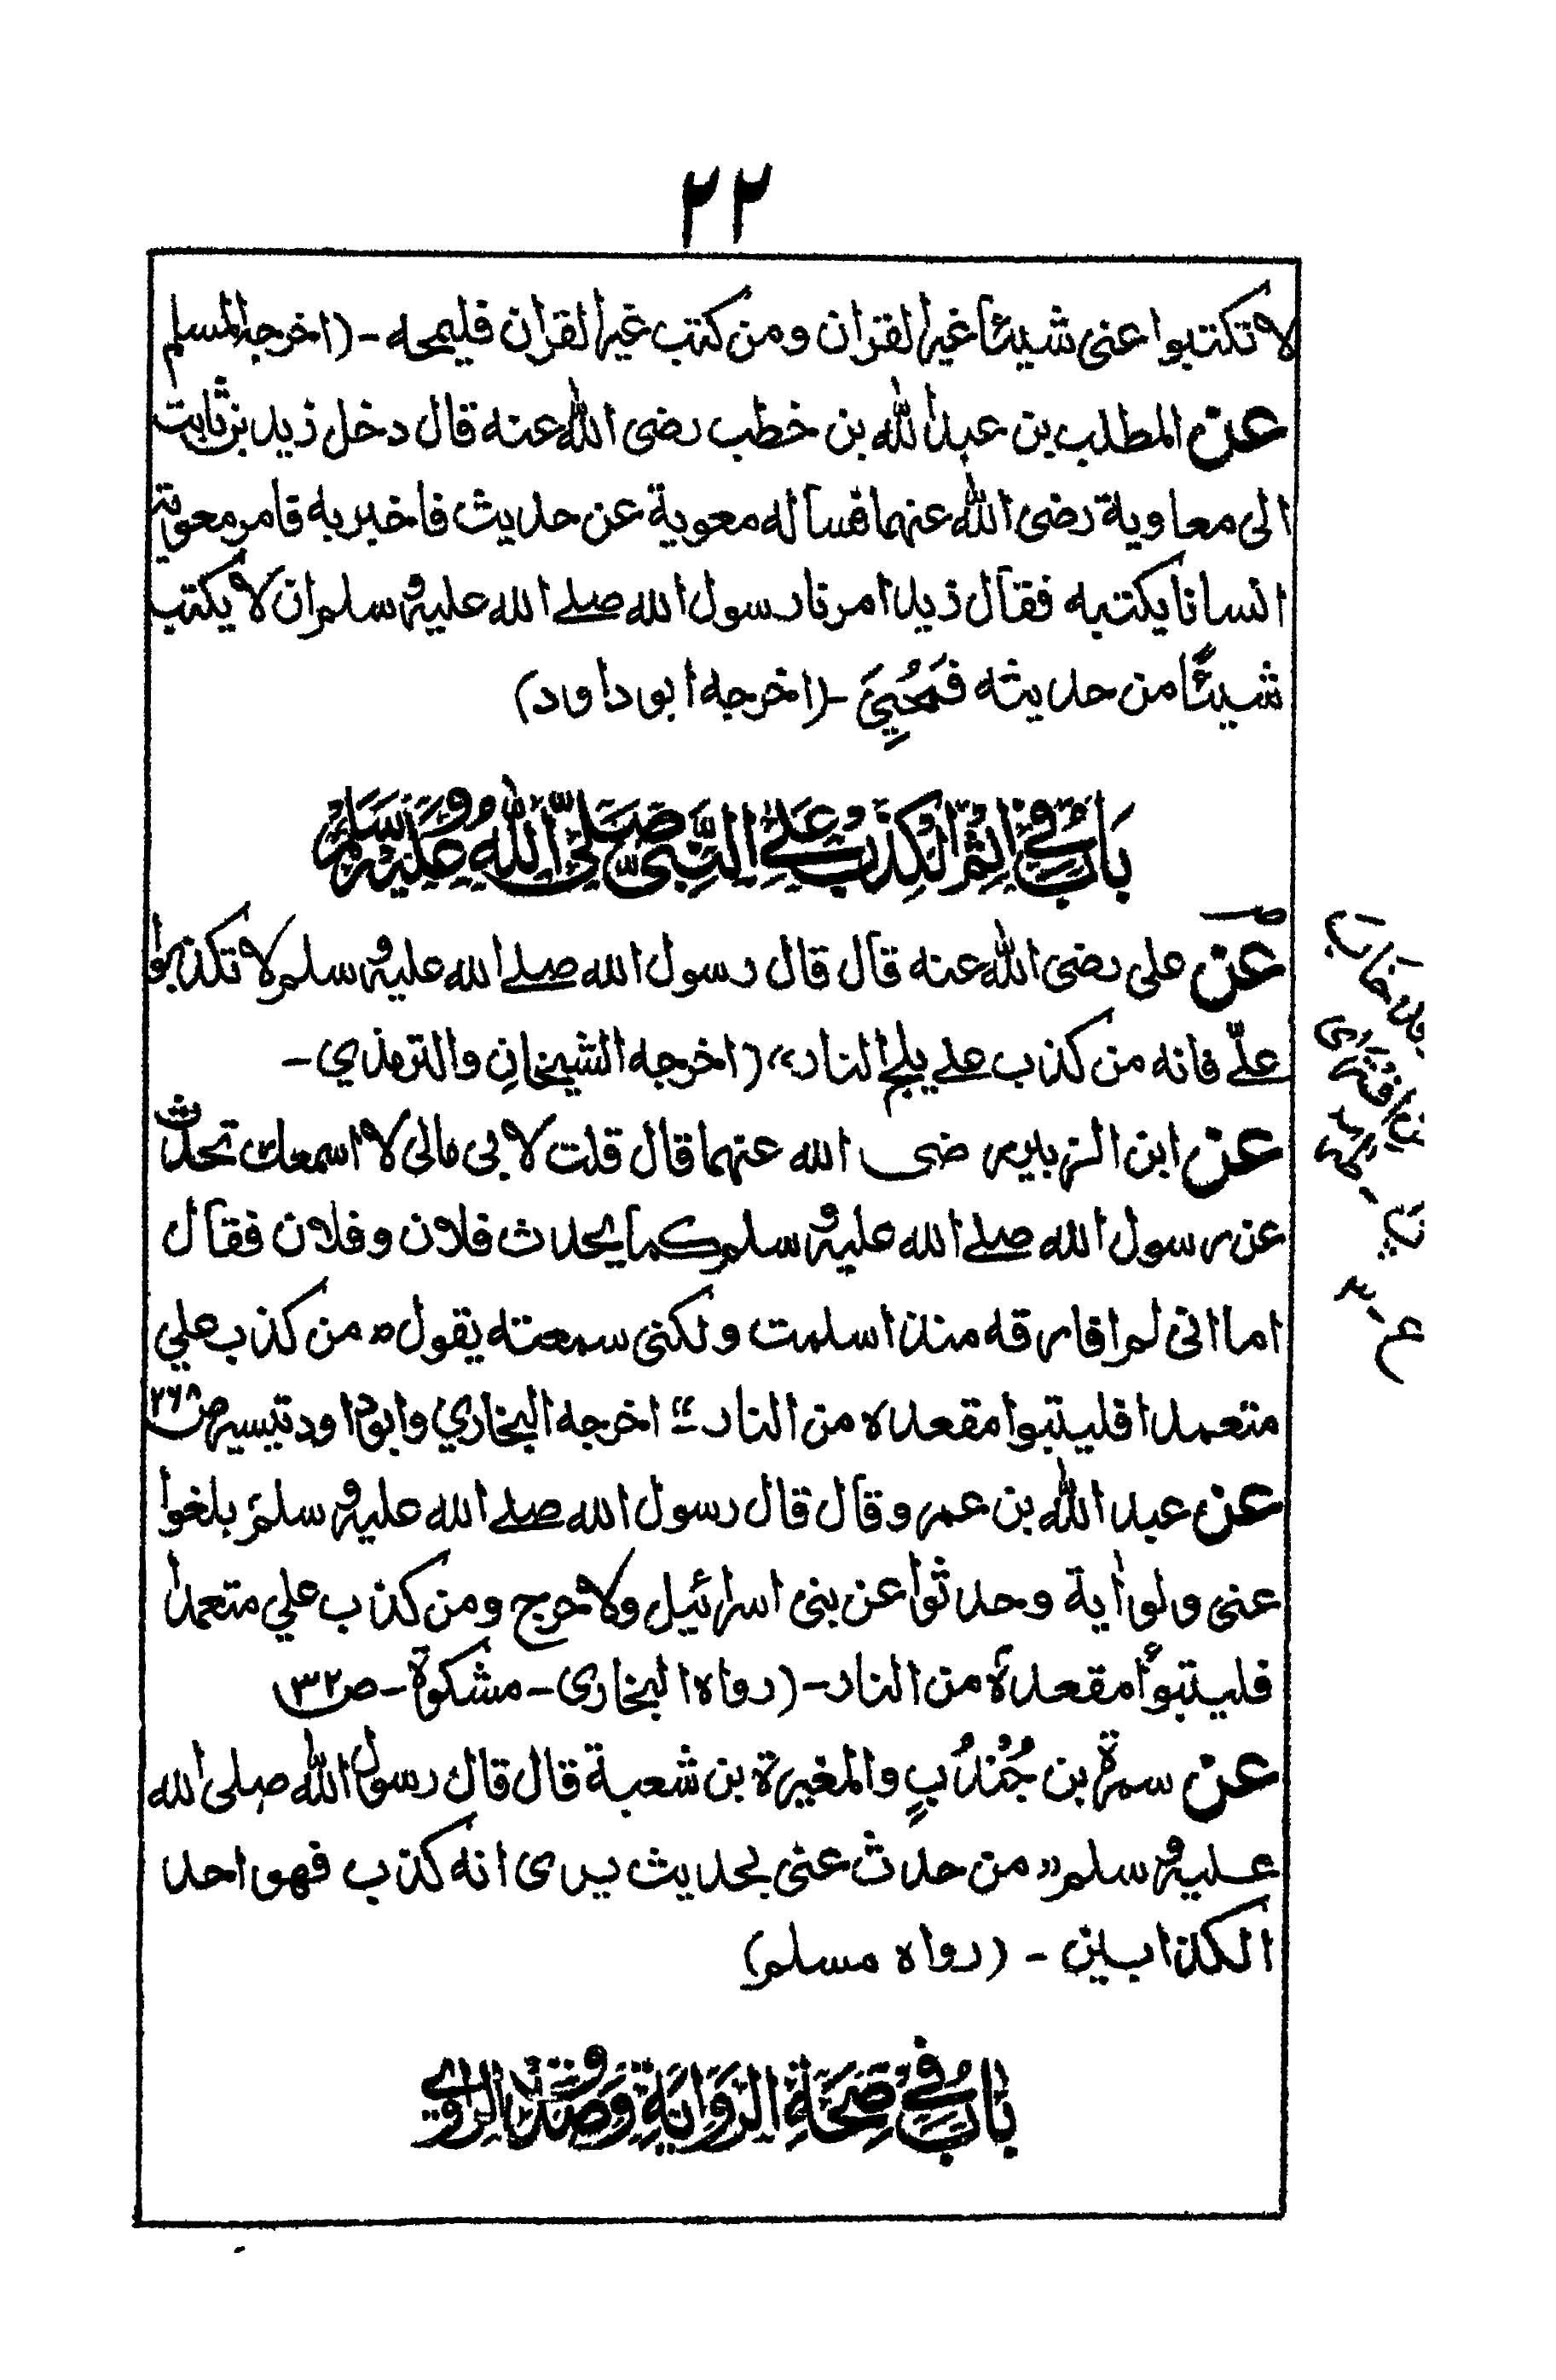 ٢٢
لا تكتبوا عنى شيئا غير القران ومن كتب غير القران فليمحه - (اخرجه المسلم
عن المطلب بن عبد الله بن خطب رضى الله عنه قال دخل زيد بن ثابت
الى معاوية رضى الله عنهما فسأله معوية عن حديث فاخبر به فامر معوية
انسانا يكتبه فقال زيد امرنا رسول الله صلے الله عليه وسلم ان لا يكتب
شيئًا من حديثه فَمُحِيَ - (اخرجه ابو داود)
بَابٌ فِي اِثْمِ الْكِذْبِ عَلَى النَّبِيِّ صَلَّى اللهُ عَلَيْهِ وَسَلَّمَ
عن على رضى الله عنه قال قال رسول الله صلے الله عليه وسلم لا تكذبوا
علىّ فانه من كذب علے يلج النار» (اخرجه الشيخانِ والترمذي -
عن ابن الزبير رضى الله عنهما قال قلت لابى مالى لا اسمعك تحدث
عن رسول الله صلے الله عليه وسلم كما يحدث فلان وفلان فقال
اما انى لم افارقه منذ اسلمت ولكنى سمعته يقول « من كذب علي
متعمدا فليتبوا مقعده من النار - " اخرجه البخاري وابو داود تيسير ص ٢٦٨
عن عبد الله بن عمرو قال قال رسول الله صلے الله عليه وسلم بلغوا
عنى ولو اية وحدثوا عن بنى اسرائيل ولا حرج ومن كذب علي متعمدا
فليتبوأ مقعدهٗ من النار - (رواه البخارى - مشكوة - ص ٣٢
عن سمرة بن جُنْدُبٍ والمغيرة بن شعبة قال قال رسول الله صلى الله
عليه وسلم « من حدث عنى بحديث يرى انه كذب فهو احد
الكذابين - (رواه مسلم)
بَابٌ فِي صِحَّةِ الرِّوَايَةِ وَصِدْقِ الرَّاوِي